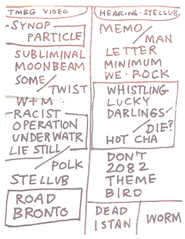 TMBG VIDEO
SYNOP
PARTICLE
SUBLIMINAL
MOONBEAM
SOME/
TWIST
W+M
RACIST
OPERATION
UNDERWATR
LIE STILL
/POLK
STELLUB
ROAD
BRONTO
HEARING·STELLUB
MEMO/
MAN
LETTER
MINIMUM
WE·ROCK
WHISTLING
LUCKY
DARLINGS
/DIE?
HOT CHA
DON'T
2082
THEME
BIRD
DEAD
ISTAN
WORM